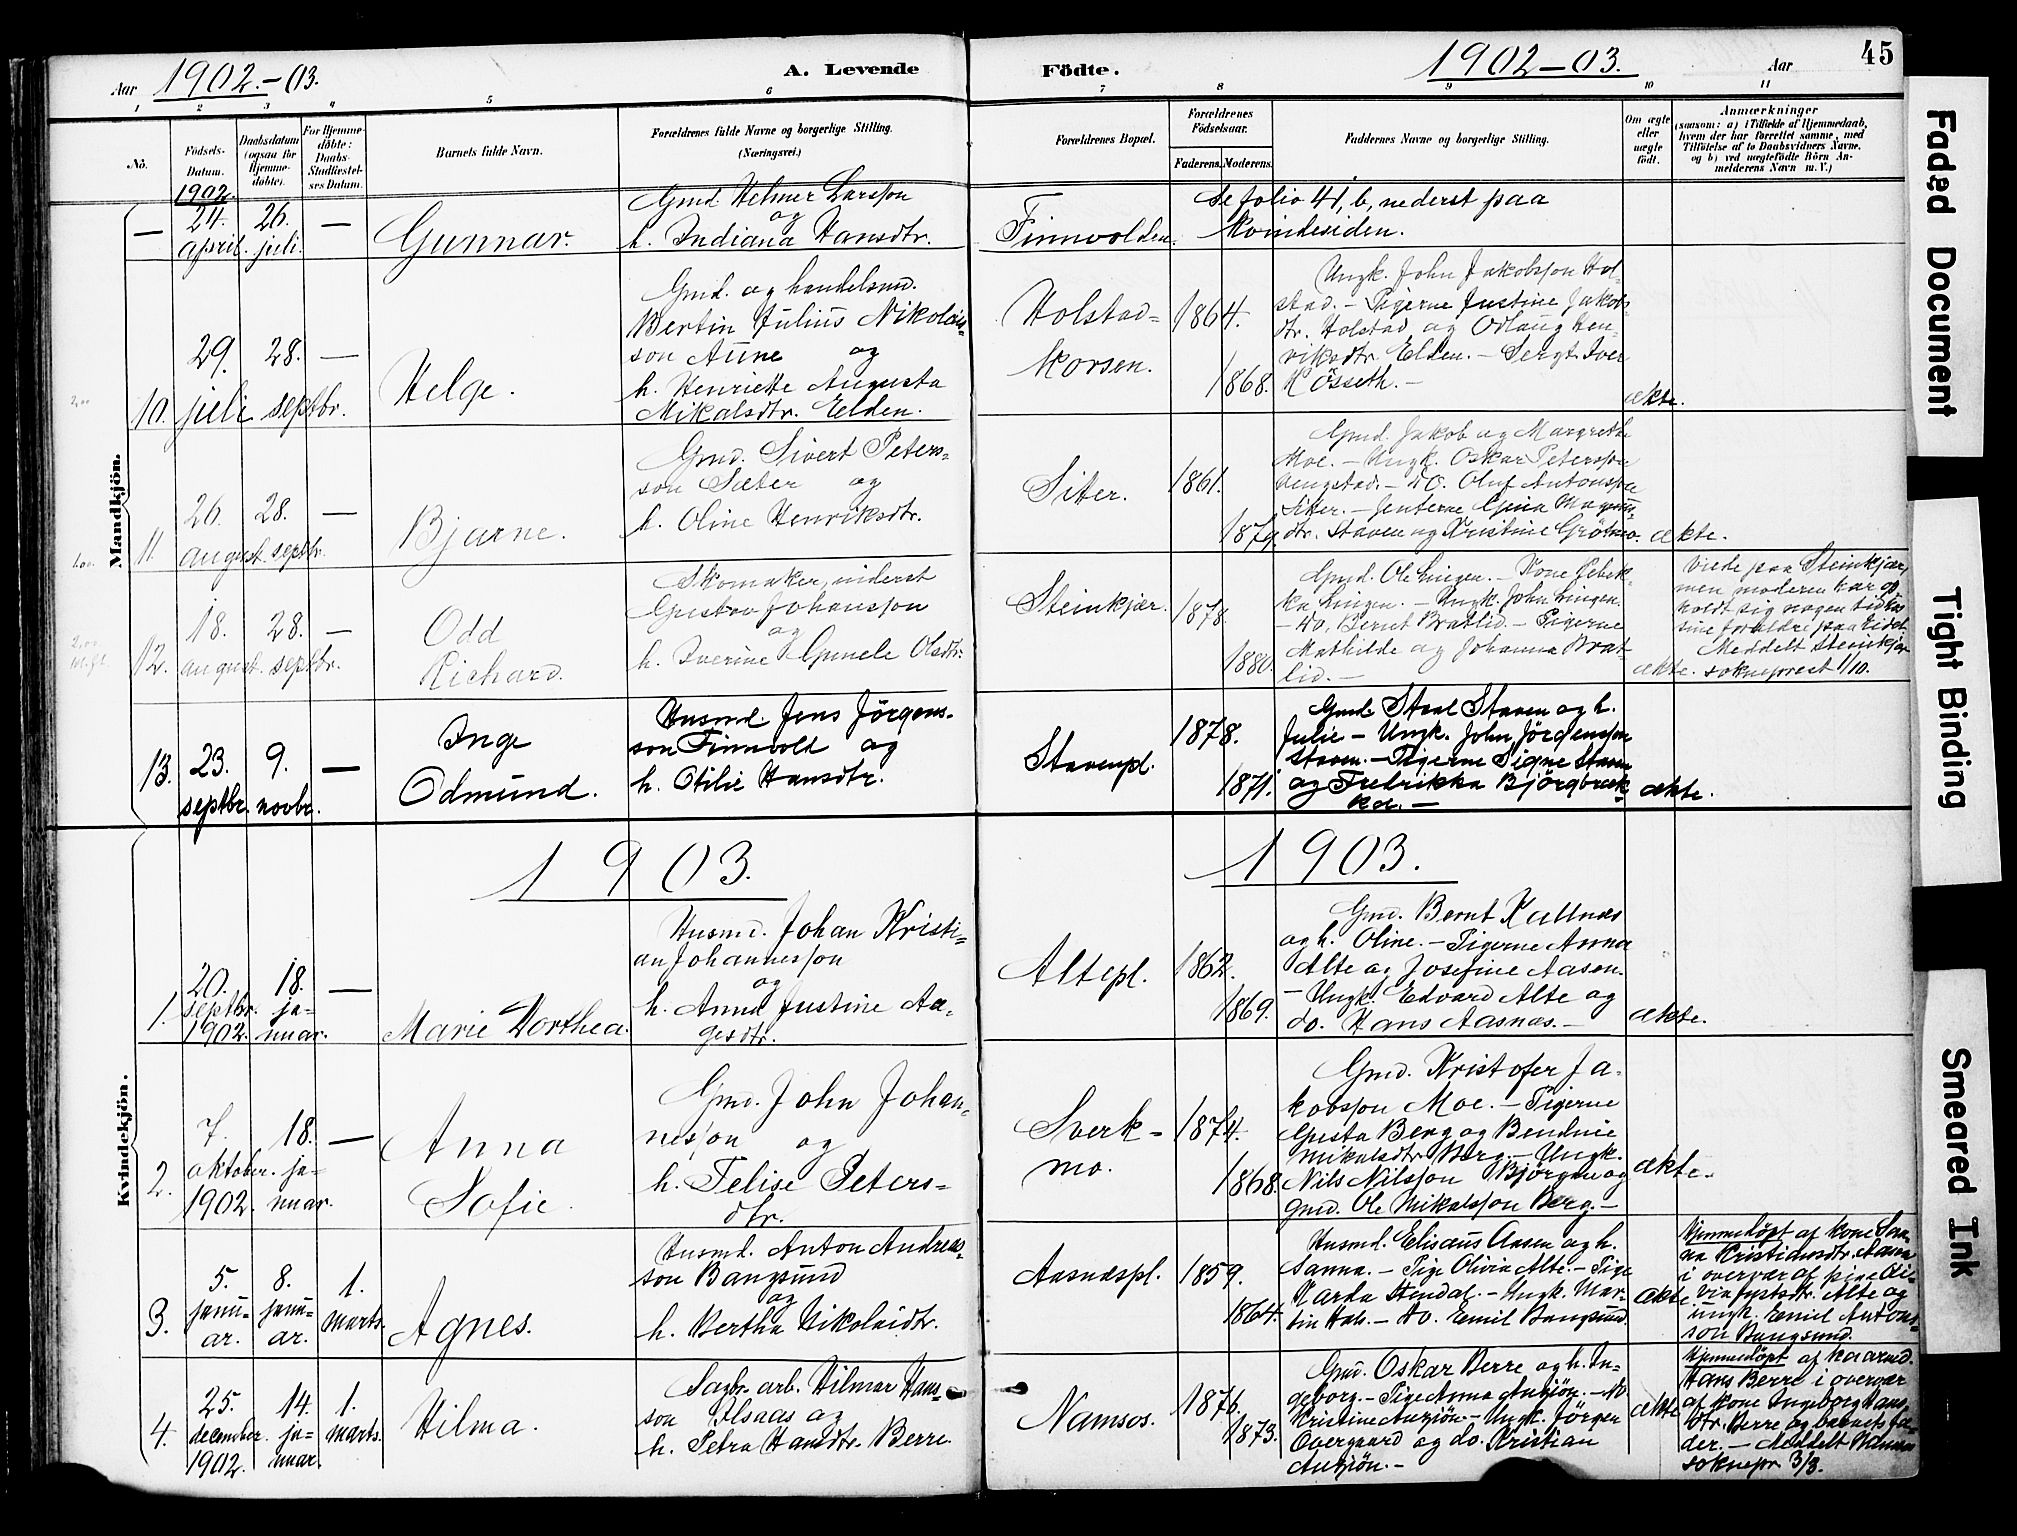 Aar 1902.-03.
A. Levende
Födte.
1902-03.
Aar
45
1 2 3 4 5 6 7 8 9 10 11
No.
Födsels-Datum.
Daabsdatum (ogsaa for Hjemme-döbte).
For Hjemme-döbte: Daabs-Stadfæstel-ses Datum.
Barnets fulde Navn.
Forældrenes fulde Navne og borgerlige Stilling. (Næringsvei.)
Forældrenes Bopæl.
Forældrenes Födselsaar.
Faderens. Moderens.
Faddernes Navne og borgerlige Stilling.
Om ægte eller uægte födt.
Anmærkninger
(saasom: a) i Tilfælde af Hjemmedaab,
hvem der har forrettet samme, med
Tilföielse af to Daabsvidners Navne,
og b) ved uægtefödte Börn An-
melderens Navn m. V.)
Mandkjön.
1902.
— 24. april. 26. juli. —
Gunnar.
Gmd. Helmer Larsson
og
h. Indiana Hansdtr.
Finnvolden.
Se folio 41, b, nederst paa
Kvindesiden.
2,00
10. 29. juli 28. septbr. —
Helge.
Gmd. og handelsmd.
Bertin Julius Nikolai-
son Aune og
h. Henriette Augusta
Mikalsdtr. Elden.
Holstad-
korsen.
1864.
1868.
Ungk. John Jakobsson Hol-
stad. - Pigerne Justine Jakobs-
dtr. Holstad og Odlaug Hen-
riksdtr. Elden. - Sergt. Iver
Kösseth. -
ækte.
1,00.
11. 26. august. 28. septbr. —
Bjarne.
Gmd. Sivert Peters-
son Sæter og
h. Oline Henriksdtr.
Siter.
1861.
1879.
Gmd. Jakob og Margrethe
Moe. - Ungk. Oskar Petersson
- do. Oluf Antonsson
Siter. - Jenterne Gina
dtr. Staven og Kristine Grötmo.
ækte.
2,00
12. 18. august. 28. septbr. —
Odd
Richard.
Skomaker, inderst
Gustav Johansson
og
h. Iverine Gunele Olsdtr.
Steinkjær.
1878.
1880.
Gmd. Ole Lingen. - Kone Rebek-
ka Lingen. - Ungk. John Lingen.
- do. Bernt Bratlid. - Pigerne
Mathilde og Johanna Brat-
lid. -
ækte.
Viede paa Steinkjær,
men moderen har op-
holdt sig nogen tid hos
sine foreldre paa Eidet.
Meddelt Steinkjær
sokneprest 1/10.
13. 23. septbr. 9. novbr. —
Inge
Odmund.
Husmd. Jens Jörgens-
son Finnvold og
h. Otilie Hansdtr.
Stavenpl.
1878.
1871.
Gmd. Staal Staven og h.
Julie - Ungk. John Jörgensson
Staven. - Pigerne Signe Staven
og Fredrikka Björgbæk-
ken. -
ækte.
Kvindekjön.
1903.
1903.
1. 20. septbr. 1902. 18. ja-
nuar. —
Marie Dorthea.
Husmd. Johan Kristi-
an Johannesson
og
h. Anna Justine Aa-
gesdtr.
Altepl.
1862.
1869.
Gmd. Bernt Kaldnes
og h. Oline. - Pigerne Anna
Alte og Josefine Aasen.
- Ungk. Edvard Alte og
do. Hans Aasnæs. -
ækte.
2. 7. oktober. 1902. 18. ja-
nuar. —
Anna
Sofie.
Gmd. John Johan-
nesson og
h. Felise Peters-
dtr.
Sverk-
mo.
1874.
1868.
Gmd. Kristofer Ja-
kobsson Moe. - Pigerne
Gusta Berg og Bendine
Mikalsdtr. Berg. - Ungk.
Nils Nilsson Björgan og
gmd. Ole Mikalsson Berg. -
ækte.
3. 5. janu-
ar. 8. janu-
ar. 1. marts.
Agnes.
Husmd. Anton Andreas-
son Bangsund
og
h. Bertha Nikolaidtr.
Aasnæspl.
1859.
1864.
Husmd. Elisæus Aasen og h.
Sanna. - Pige Olivia Alte. - Pige
Karda Stendal. - Ungk. Mar-
tin Hals. - do. Emil Bangsund.
ækte.
Hjemmedöpt af kone San-
na Kristiansdtr. Aasen
i overvær af pige Oli-
via Alte og
ungk. Emil Antons-
son Bangsund.
4. 25. december. 1902. 14. ja-
nuar. 1. marts.
Hilma.
Sagbr. arb. Hilmar Hans-
son Olsaas og
h. Petra Hansdtr. Berre.
Namsos.
1876.
1873.
Gmd. Oskar Berre og h. In-
geborg. - Pige Anna Autjön. - do.
Kristine Autjön. - Ungk. Jörgen
Overgaard og do. Kristian
Autjön. -
ækte
Hjemmedöpt af kaarmd.
Hans Berre i overvær
af kone Ingeborg Hans-
dtr. Berre og barnets fa-
der. - Meddelt Namsos
soknepr. 3/3.
Faded Document
Tight Binding
Smeared Ink